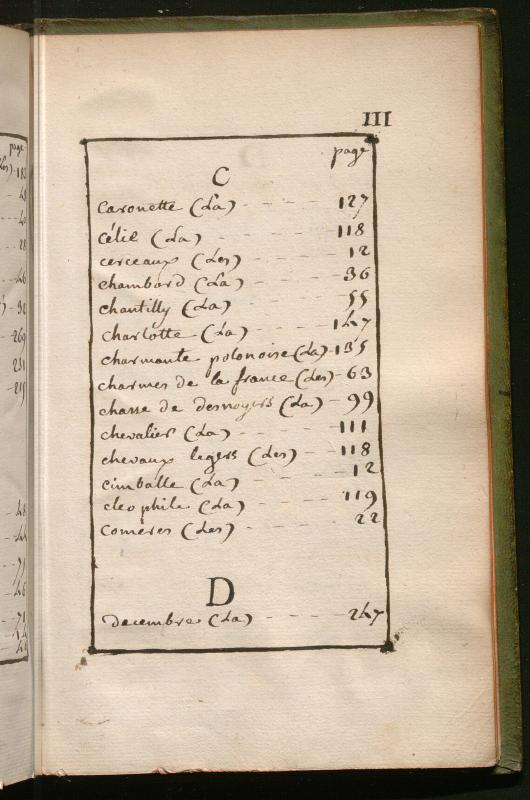 III
page
C
caronette (La) 127
célie (La) 118
cerceaux (Les) 12
chambord (La) 36
chantilly (La) 55
charlotte (La) 147
charmante polonoise (La) 135
charmes de la france (Les) 63
chasse de desnoyers (La) 99
chevalier (La) 111
chevaux legers (Les) 118
cimballe (La) 12
cleophile (La) 119
comères (Les) 22
D
decembre (La) 247
page